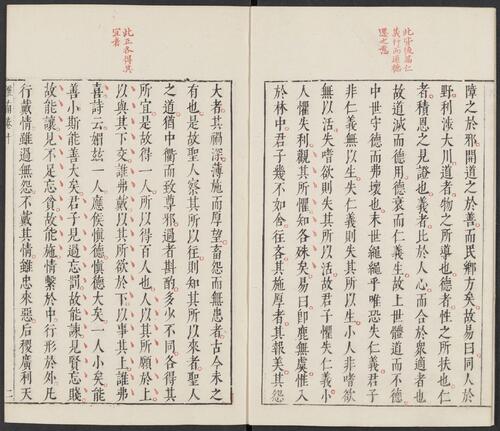 障之於邪開道之於善而民鄉方矣故易曰同人於
野利涉大川道者物之所導也德者性之所扶也仁
者積恩之見證也義者比於人心而合於衆適者也
故道滅而德用德衰而仁義生故上世體道而不德
中世守德而弗壞也末世繩繩乎唯恐失仁義君子
非仁義無以生失仁義則失其所以生小人非嗜欲
無以活失嗜欲則失其所以活故君子懼失仁義小
人懼失利觀其所懼知各殊矣易曰即鹿無虞惟入
於林中君子幾不如舍往吝其施厚者其報美其怨
此正各得其
宜者
大者其禍深薄施而厚望畜怨而無患者古今未之
有也是故聖人察其所以往則知其所以來者聖人
之道猶中衢而致尊邪過者斟酌多少不同各得其
所宜是故得一人所以得百人也人以其所願於上
以與其下交誰弗戴以其所欲於下以事其上誰弗
喜詩云媚茲一人應侯慎德慎德大矣一人小矣能
善小斯能善大矣君子見過忘罰故能諫見賢忘賤
故能讓見不足忘貧故能施情繫於中行形於外凡
行戴情雖過無怨不戴其情雖忠來惡后稷廣利天
二